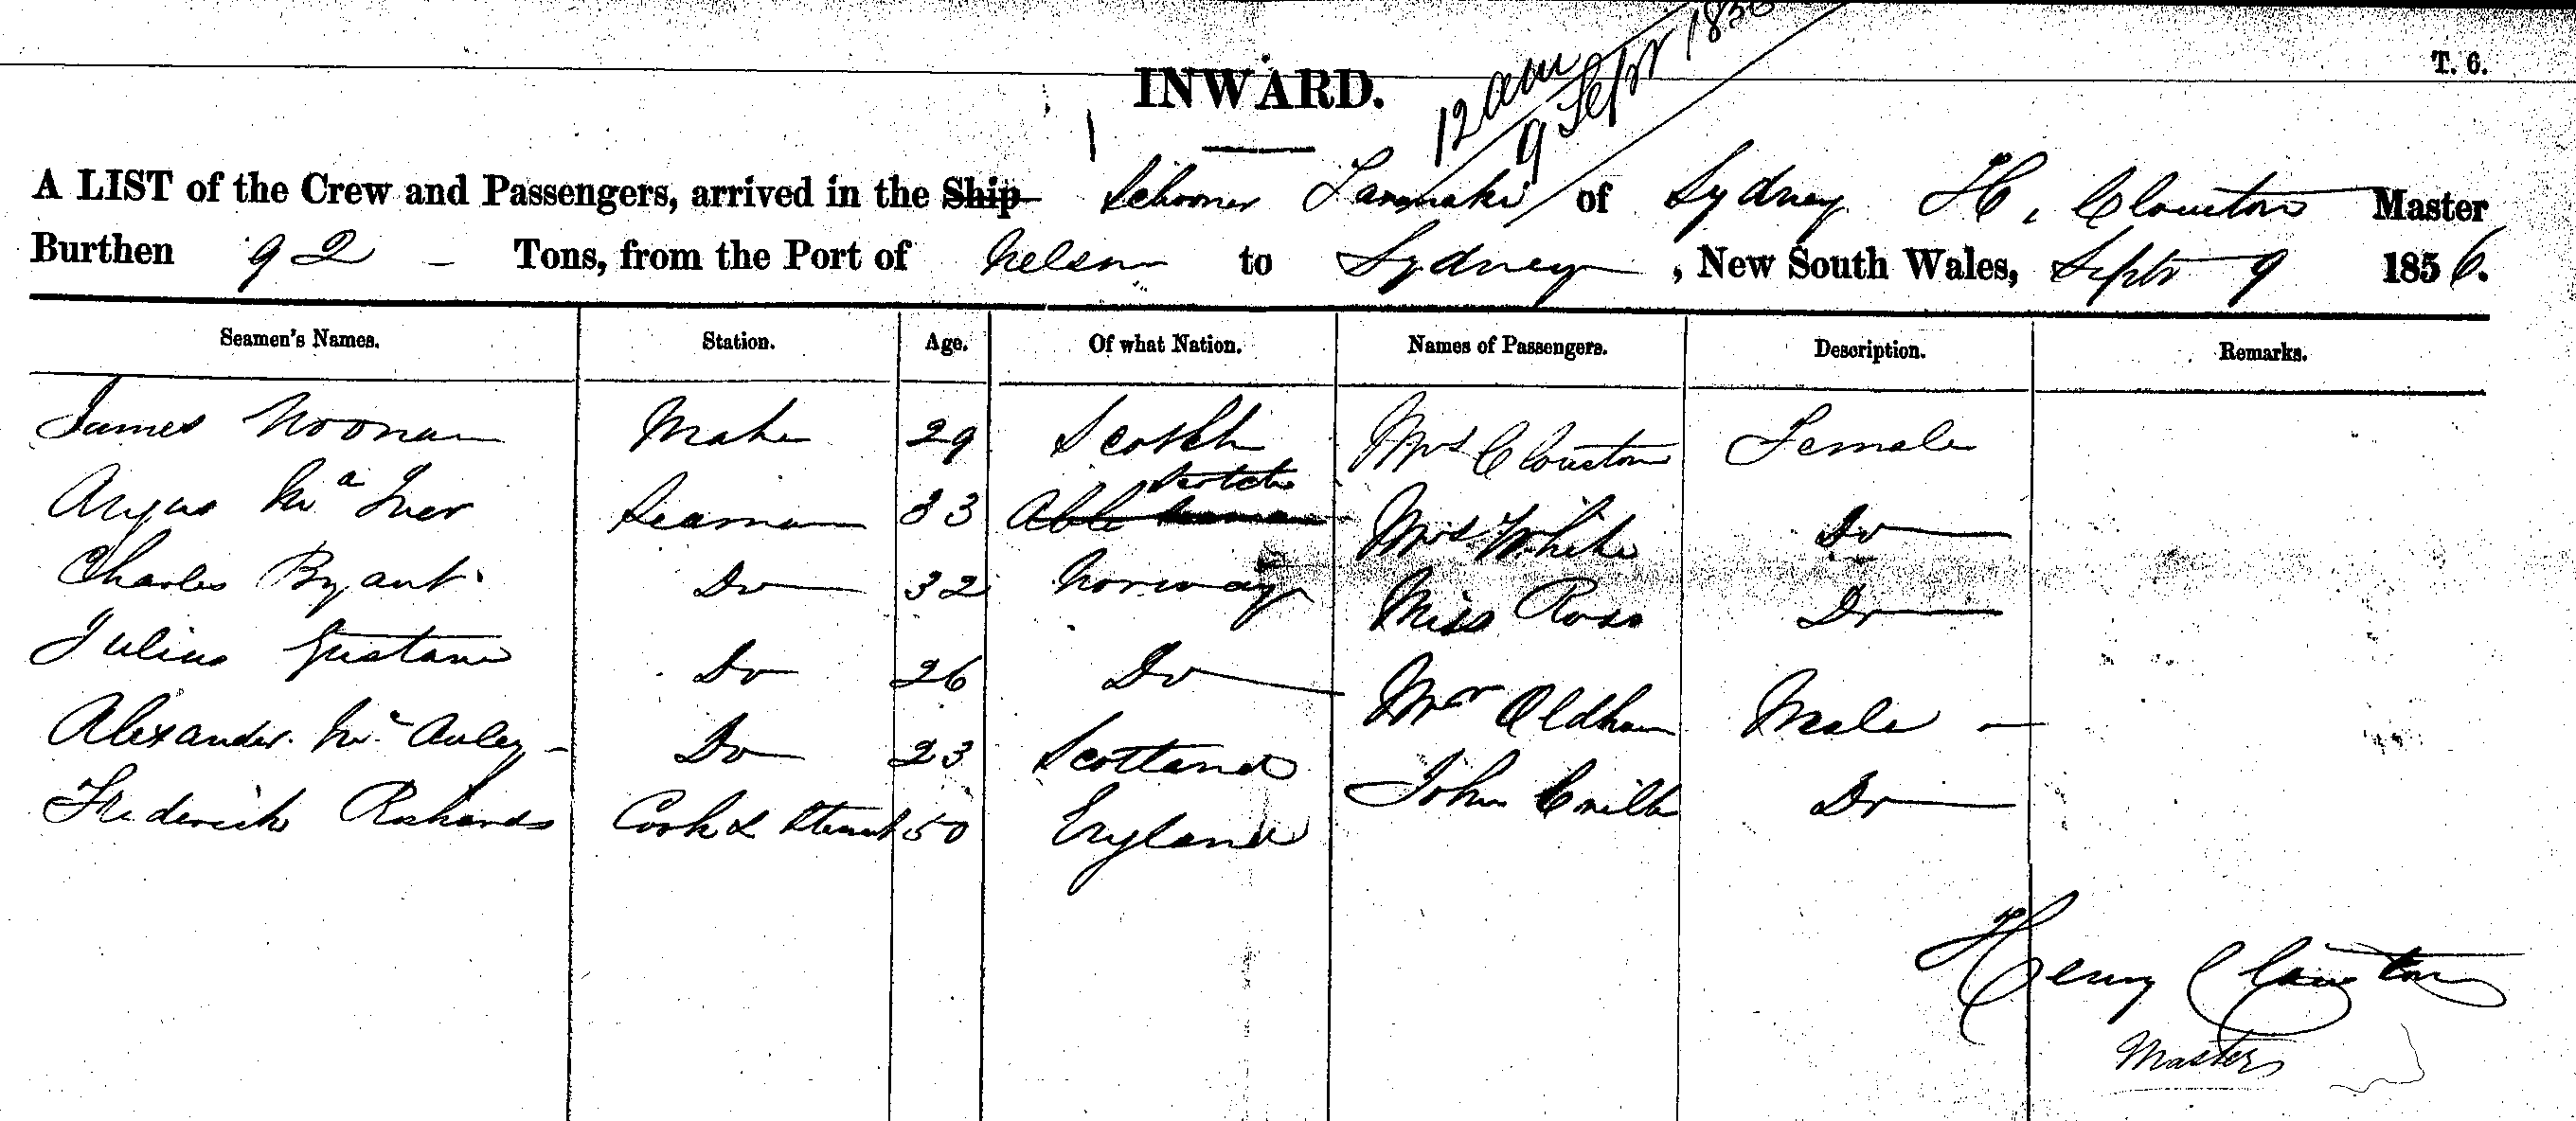 T. 6.
INWARD.
12 am
9 Septr 1856
A LIST of the Crew and Passengers, arrived in the Ship Schooner Tarmaki of Sydney H, Clouston Master
Burthen 92 – Tons, from the Port of Nelson to Sydney , New South Wales, Septr 9 1856.
Seamen's Names. Station. Age. Of what Nation. Names of Passengers. Description. Remarks.
James Noonan Mate 29 Scotch Mrs Clouston Female
Scotch
Angus Mc Iver Seaman 33 Able Seaman Mrs White Do
Charles Bryant Do 32 Norway Miss Ross Do
Julius Gustave Do 26 Do Mr Oldham Male –
Alexander McAuley – Do 23 Scotland John Smith Do
Frederick Richards Cook & Steward 50 England
Henry Clouston
Master